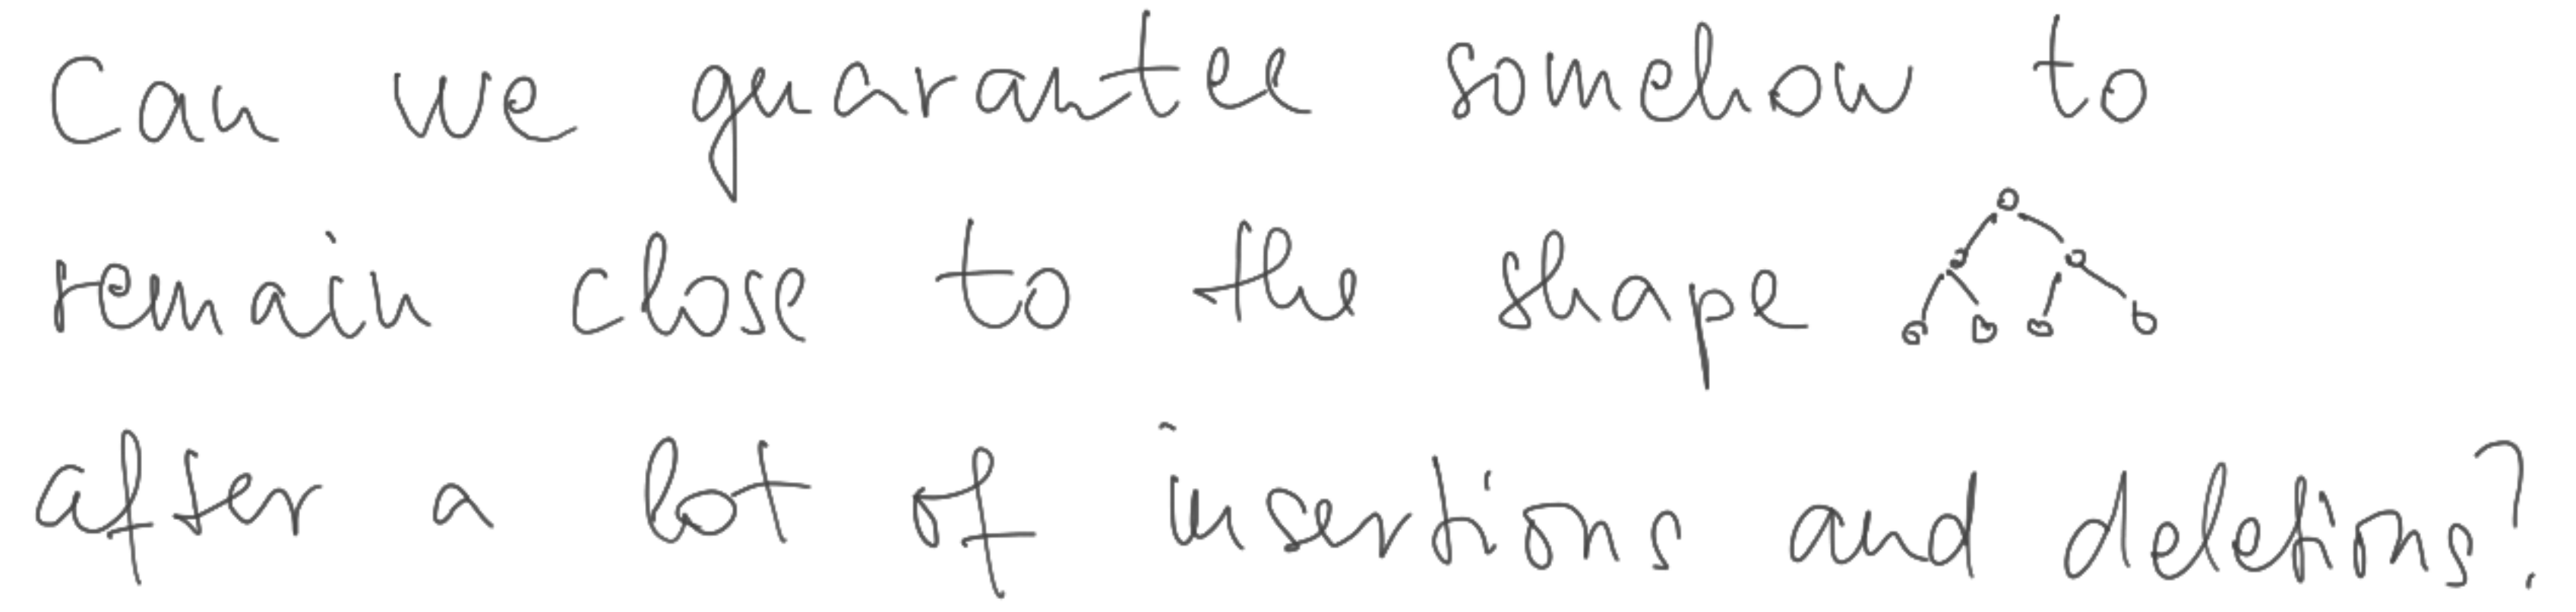 Can we guarantee somehow to
remain close to the shape
after a lot of insertions and deletions?